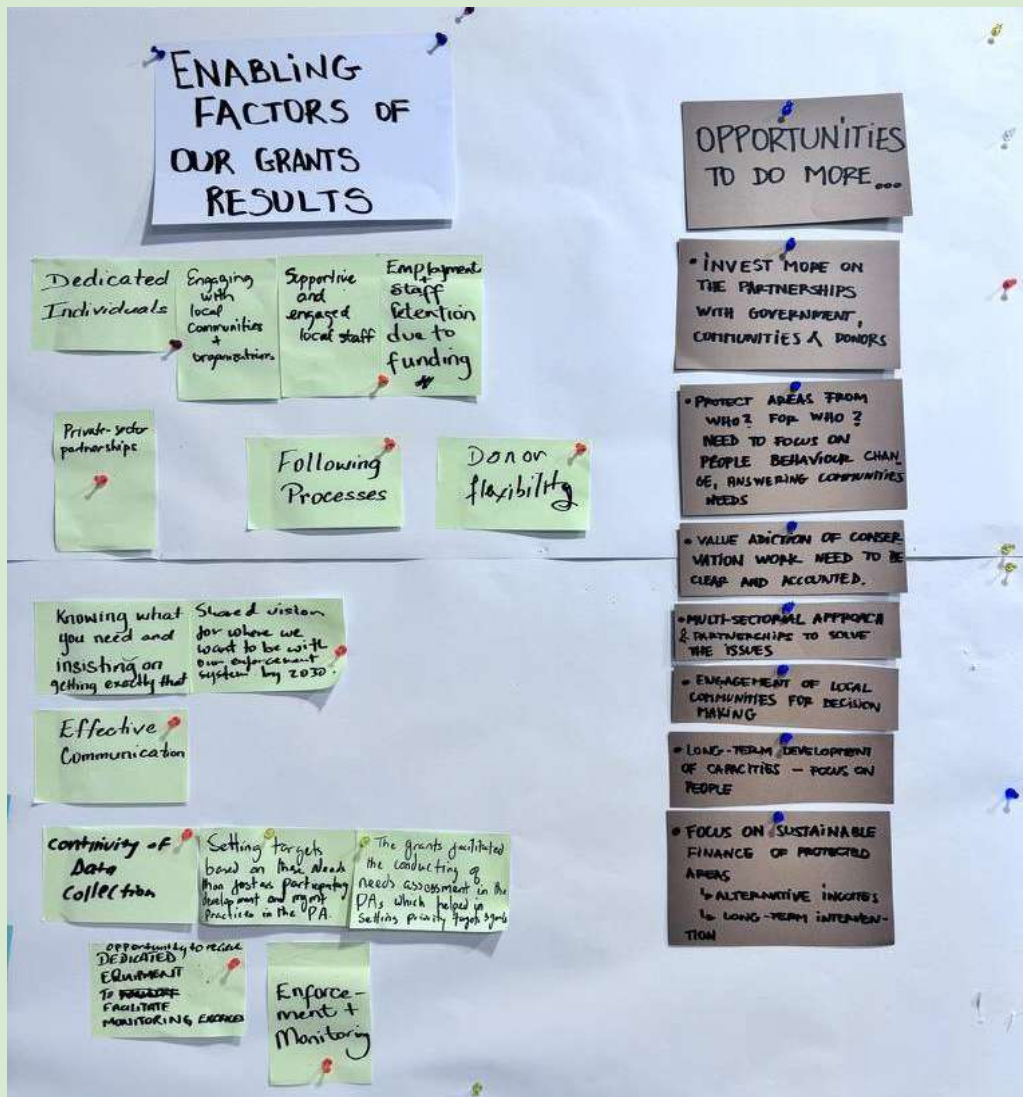 ENABLING
FACTORS OF
OUR GRANTS
RESULTS
Dedicated
Individuals
Engaging
with
local
communities
+
organizations
Supportive
and
engaged
local staff
Employment
+
staff
Retention
due to
funding
Private-sector
partnerships
Following
Processes
Donor
flexibility
Knowing what
you need and
insisting on
getting exactly that
Shared vision
for where we
want to be with
our enforcement
system by 2030.
Effective
Communication
continuity of
Data
Collection
Setting targets
based on these Needs
than fosters participatory
development and mgmt
Practices in the PA.
The grants facilitated
the conducting of
needs assessment in the
PAs which helped in
Setting priority targets
opportunity to receive
DEDICATED
EQUIPMENT
TO
FACILITATE
MONITORING EXERCISES
Enforce-
ment +
Monitoring
OPPORTUNITIES
TO DO MORE...
• INVEST MORE ON
THE PARTNERSHIPS
WITH GOVERNMENT,
COMMUNITIES & DONORS
• PROTECT AREAS FROM
WHO? FOR WHO?
NEED TO FOCUS ON
PEOPLE BEHAVIOUR CHAN
GE, ANSWERING COMMUNITIES
NEEDS
• VALUE ADICTION OF CONSER
VATION WORK NEED TO BE
CLEAR AND ACCOUNTED.
• MULTI-SECTORIAL APPROACH
& PARTNERSHIPS TO SOLVE
THE ISSUES
• ENGAGEMENT OF LOCAL
COMMUNITIES FOR DECISION
MAKING
• LONG-TERM DEVELOPMENT
OF CAPACITIES - FOCUS ON
PEOPLE
• FOCUS ON SUSTAINABLE
FINANCE OF PROTECTED
AREAS
↳ ALTERNATIVE INCOMES
↳ LONG-TERM INTERVEN-
TION